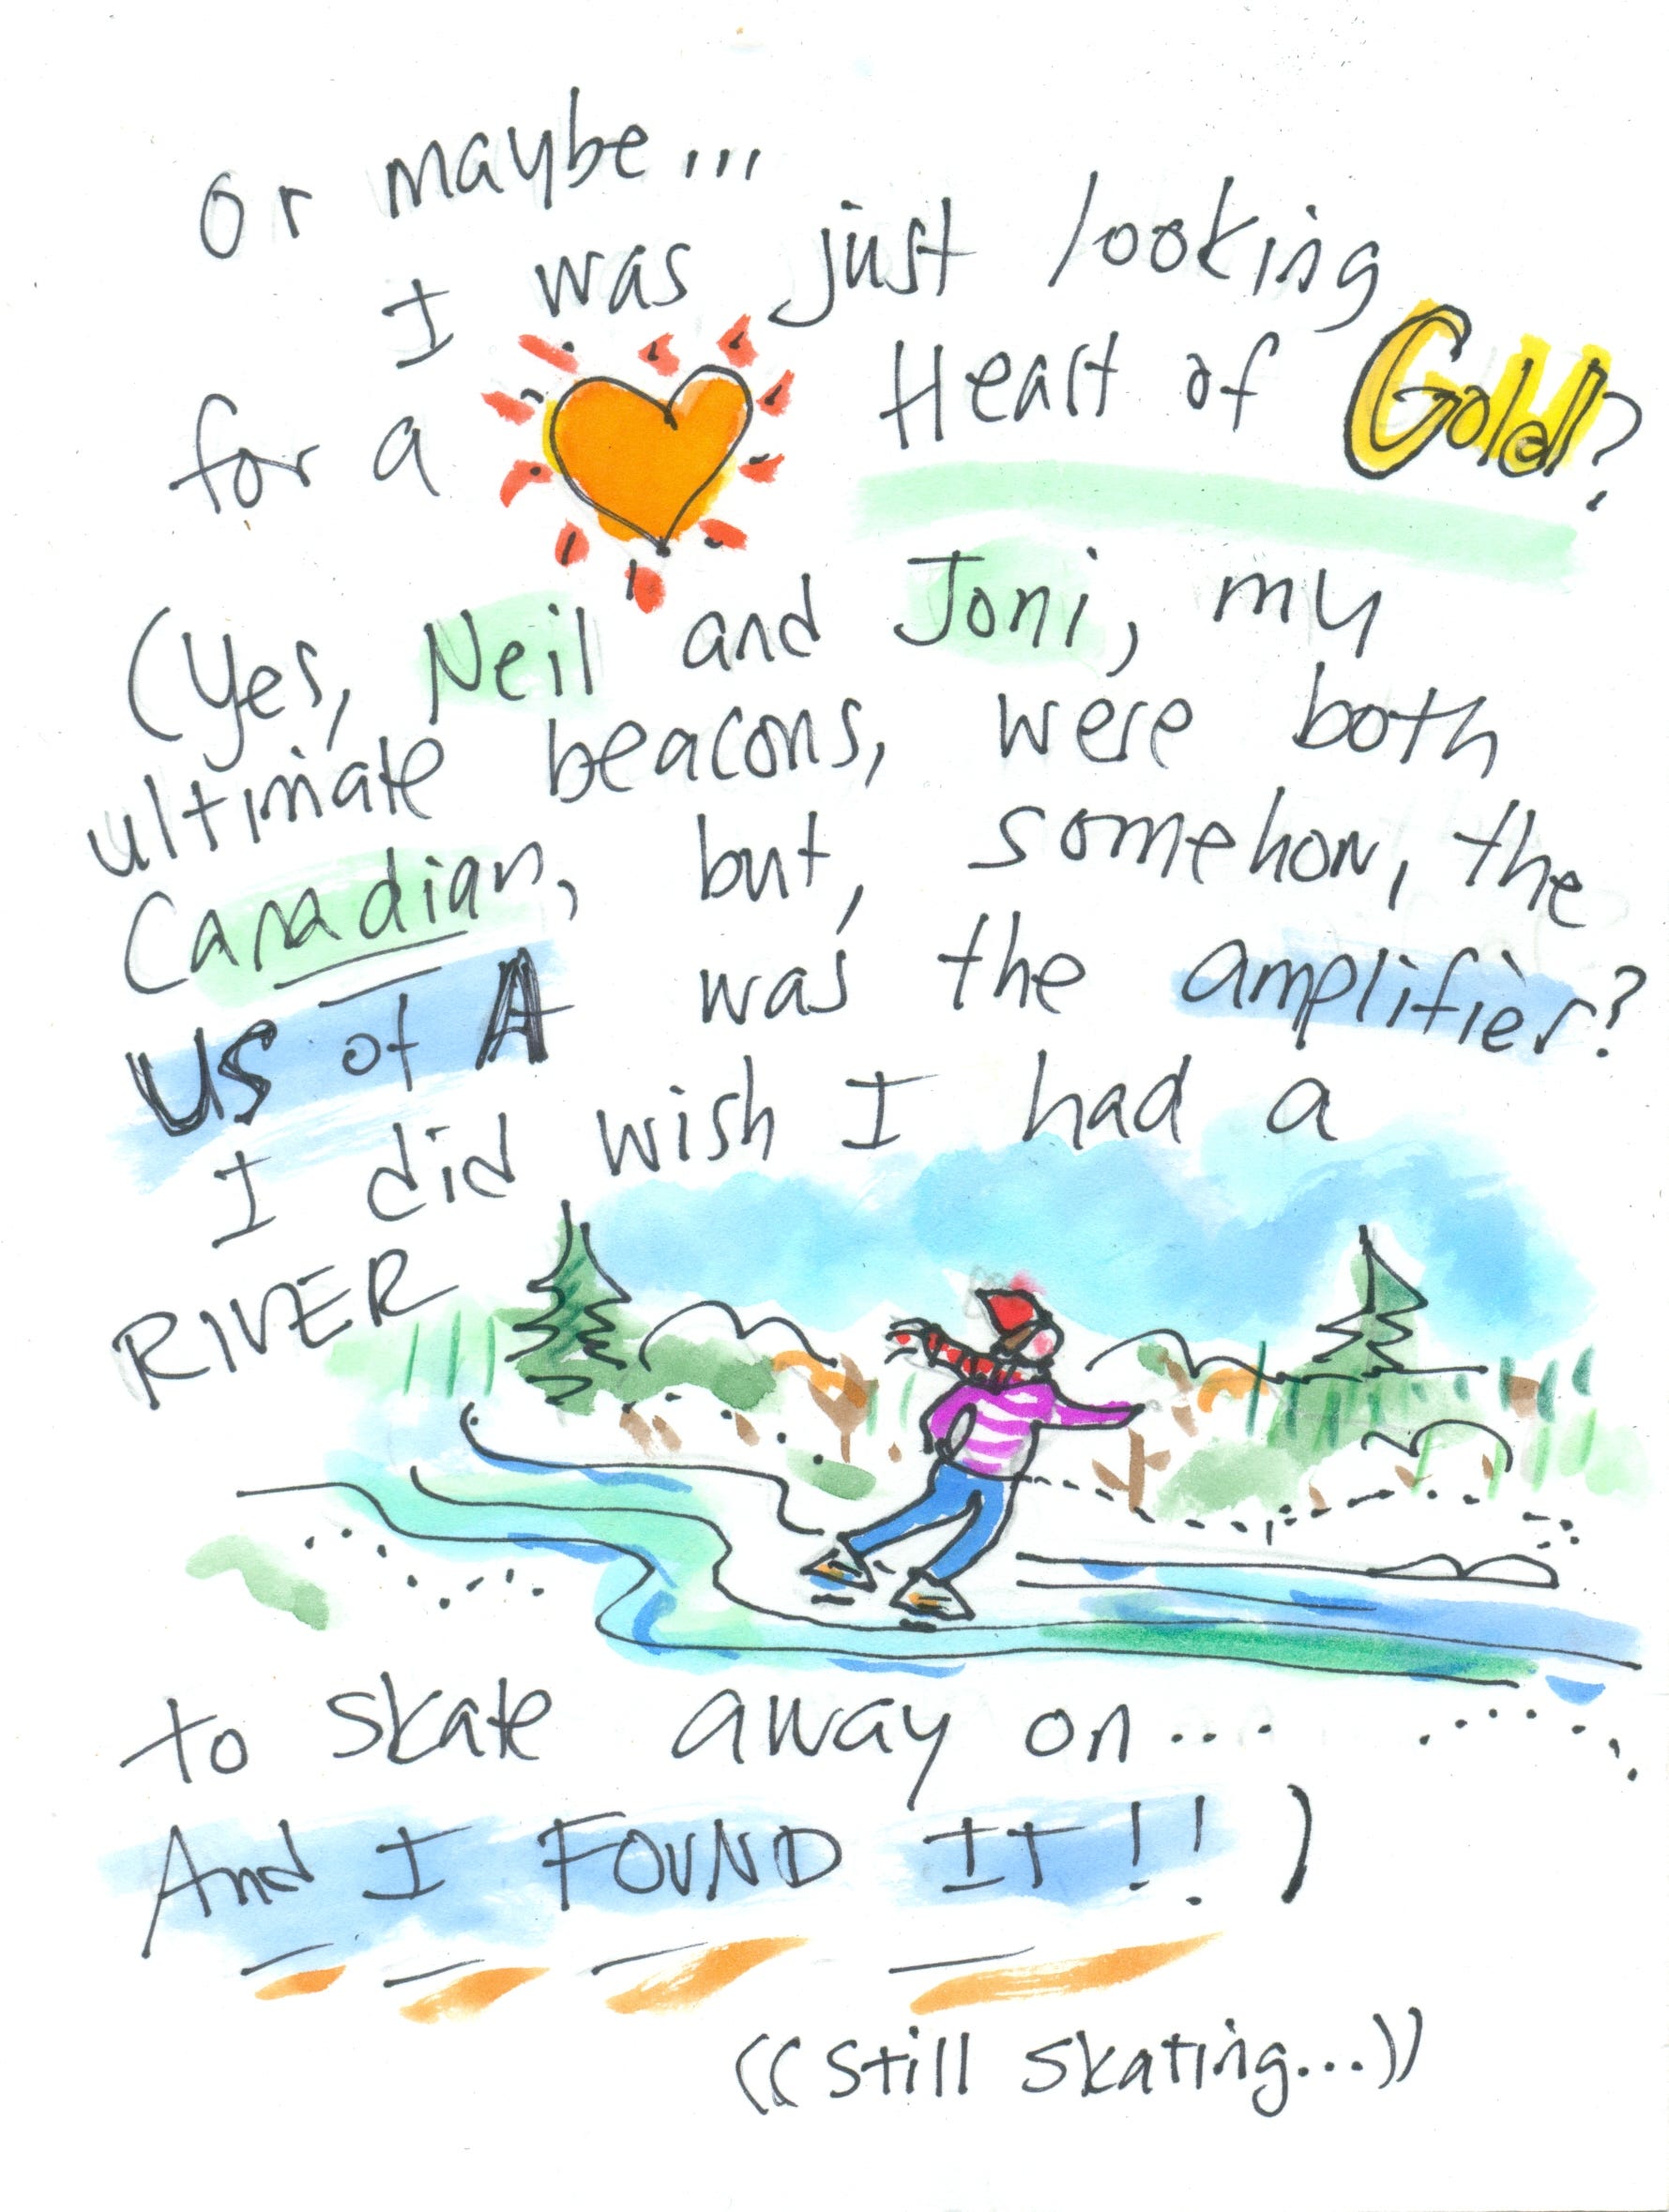 Or maybe...
I was just looking
for a Heart of Gold?
(Yes, Neil and Joni, my
ultimate beacons, were both
Canadian, but, somehow, the
US of A was the amplifier?
I did wish I had a
RIVER
to skate away on...
And I FOUND IT!!)
((Still skating...))